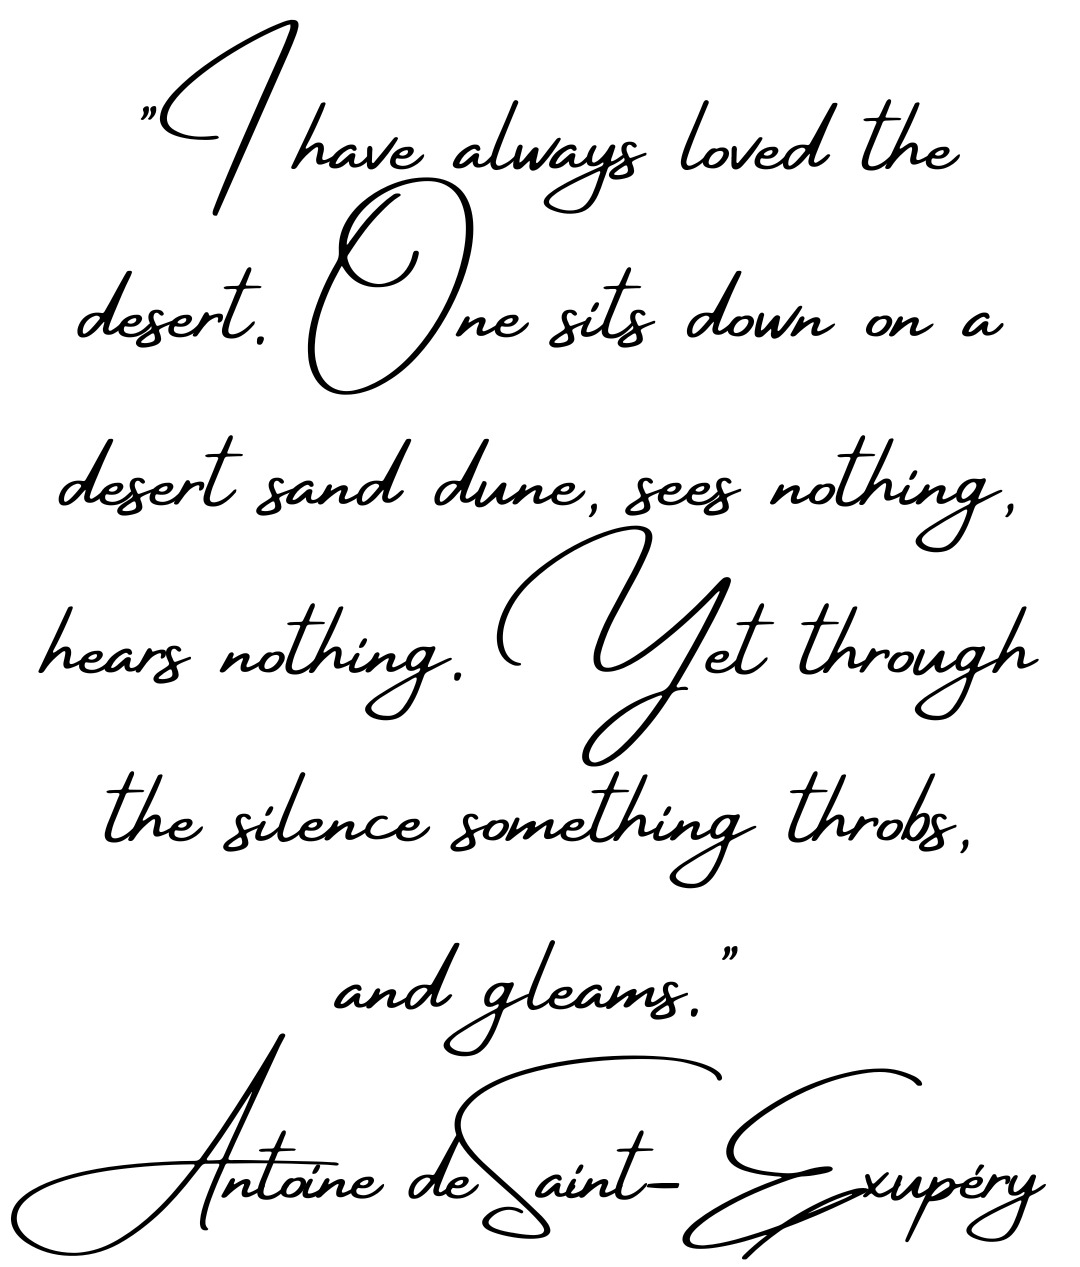 "I have always loved the
desert. One sits down on a
desert sand dune, sees nothing,
hears nothing. Yet through
the silence something throbs,
and gleams."
Antoine de Saint-Exupéry